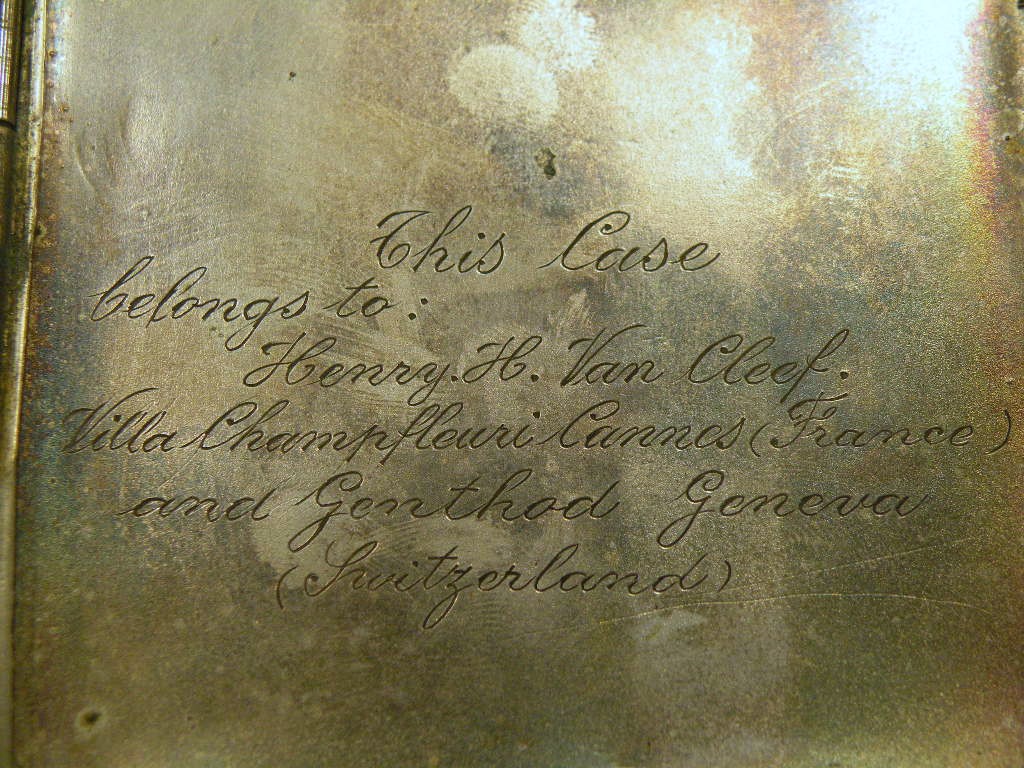 This Case
belongs to:
Henry. H. Van Cleef.
Villa Champfleuri Cannes (France)
and Genthod Geneva
(Switzerland)